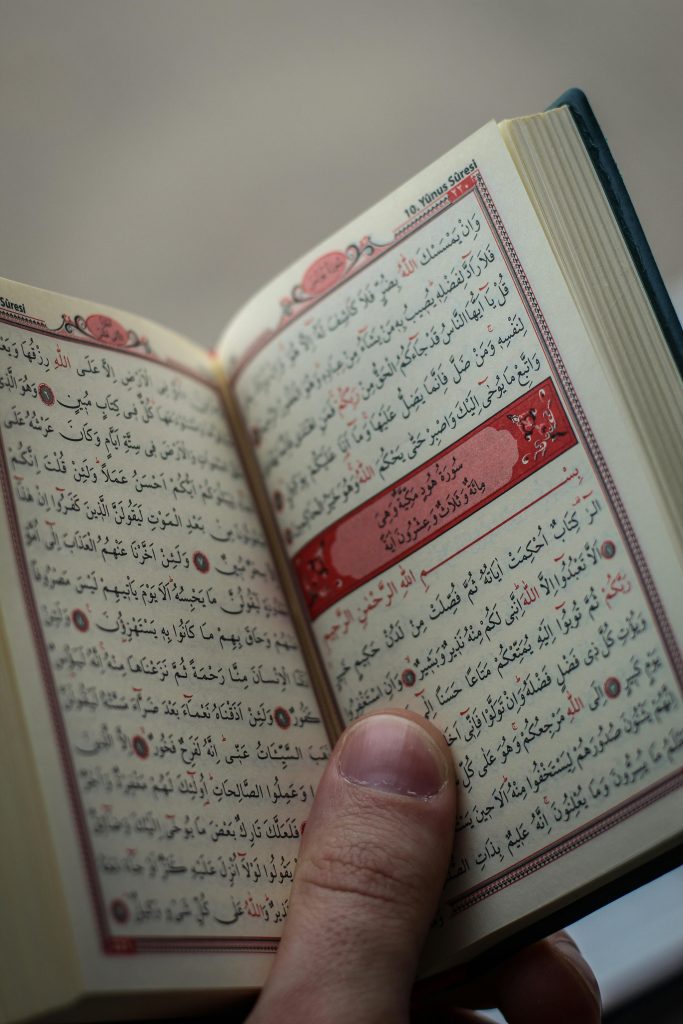 10. Yûnus Sûresi
٢٢٠
وَاِنْ يَمْسَسْكَ اللّٰهُ بِضُرٍّ فَلَا كَاشِفَ لَهُ اِلَّا هُوَ
فَلَا رَآدَّ لِفَضْلِهِ يُصِيبُ بِهِ مَنْ يَشَاءُ مِنْ عِبَادِهِ وَهُوَ
قُلْ يَا اَيُّهَا النَّاسُ قَدْ جَاءَكُمُ الْحَقُّ مِنْ رَبِّكُمْ فَمَنِ
لِنَفْسِهِ وَمَنْ ضَلَّ فَاِنَّمَا يَضِلُّ عَلَيْهَا وَمَا اَنَا عَلَيْكُمْ
وَاتَّبِعْ مَا يُوحٰى اِلَيْكَ وَاصْبِرْ حَتّٰى يَحْكُمَ اللّٰهُ وَهُوَ خَيْرُ
سُورَةُ هُودٍ مَكِّيَّةٌ وَهِيَ
مِائَةٌ وَثَلَاثٌ وَعِشْرُونَ اٰيَةً
بِسْمِ اللّٰهِ الرَّحْمٰنِ الرَّحِيمِ
الٓرٰ كِتَابٌ اُحْكِمَتْ اٰيَاتُهُ ثُمَّ فُصِّلَتْ مِنْ لَدُنْ حَكِيمٍ خَبِيرٍ
اَلَّا تَعْبُدُوا اِلَّا اللّٰهَ اِنَّنِي لَكُمْ مِنْهُ نَذِيرٌ وَبَشِيرٌ وَاَنِ اسْتَغْفِرُوا
رَبَّكُمْ ثُمَّ تُوبُوا اِلَيْهِ يُمَتِّعْكُمْ مَتَاعًا حَسَنًا اِلٰى
وَيُؤْتِ كُلَّ ذِي فَضْلٍ فَضْلَهُ وَاِنْ تَوَلَّوْا فَاِنِّي
يَوْمٍ كَبِيرٍ اِلَى اللّٰهِ مَرْجِعُكُمْ وَهُوَ عَلٰى كُلِّ
اِنَّهُمْ يَثْنُونَ صُدُورَهُمْ لِيَسْتَخْفُوا مِنْهُ اَلَا حِينَ
يَعْلَمُ مَا يُسِرُّونَ وَمَا يُعْلِنُونَ اِنَّهُ عَلِيمٌ بِذَاتِ
Sûresi
الْاَرْضِ اِلَّا عَلَى اللّٰهِ رِزْقُهَا
كُلٌّ فِي كِتَابٍ مُبِينٍ وَهُوَ الَّذِي
وَالْاَرْضَ فِي سِتَّةِ اَيَّامٍ وَكَانَ عَرْشُهُ عَلَى
اَيُّكُمْ اَحْسَنُ عَمَلًا وَلَئِنْ قُلْتَ اِنَّكُمْ
مِنْ بَعْدِ الْمَوْتِ لَيَقُولَنَّ الَّذِينَ كَفَرُوا اِنْ هٰذَا
مُبِينٌ وَلَئِنْ اَخَّرْنَا عَنْهُمُ الْعَذَابَ اِلٰى اُمَّةٍ
لَيَقُولُنَّ مَا يَحْبِسُهُ اَلَا يَوْمَ يَأْتِيهِمْ لَيْسَ مَصْرُوفًا
وَحَاقَ بِهِمْ مَا كَانُوا بِهِ يَسْتَهْزِؤُنَ وَلَئِنْ
الْاِنْسَانَ مِنَّا رَحْمَةً ثُمَّ نَزَعْنَاهَا مِنْهُ اِنَّهُ
كَفُورٌ وَلَئِنْ اَذَقْنَاهُ نَعْمَاءَ بَعْدَ ضَرَّاءَ مَسَّتْهُ لَيَقُولَنَّ
ذَهَبَ السَّيِّئَاتُ عَنِّي اِنَّهُ لَفَرِحٌ فَخُورٌ اِلَّا الَّذِينَ
وَعَمِلُوا الصَّالِحَاتِ اُولٰئِكَ لَهُمْ مَغْفِرَةٌ وَاَجْرٌ
فَلَعَلَّكَ تَارِكٌ بَعْضَ مَا يُوحٰى اِلَيْكَ وَضَائِقٌ
يَقُولُوا لَوْلَا اُنْزِلَ عَلَيْهِ كَنْزٌ اَوْ جَاءَ
نَذِيرٌ وَاللّٰهُ عَلٰى كُلِّ شَيْءٍ وَكِيلٌ